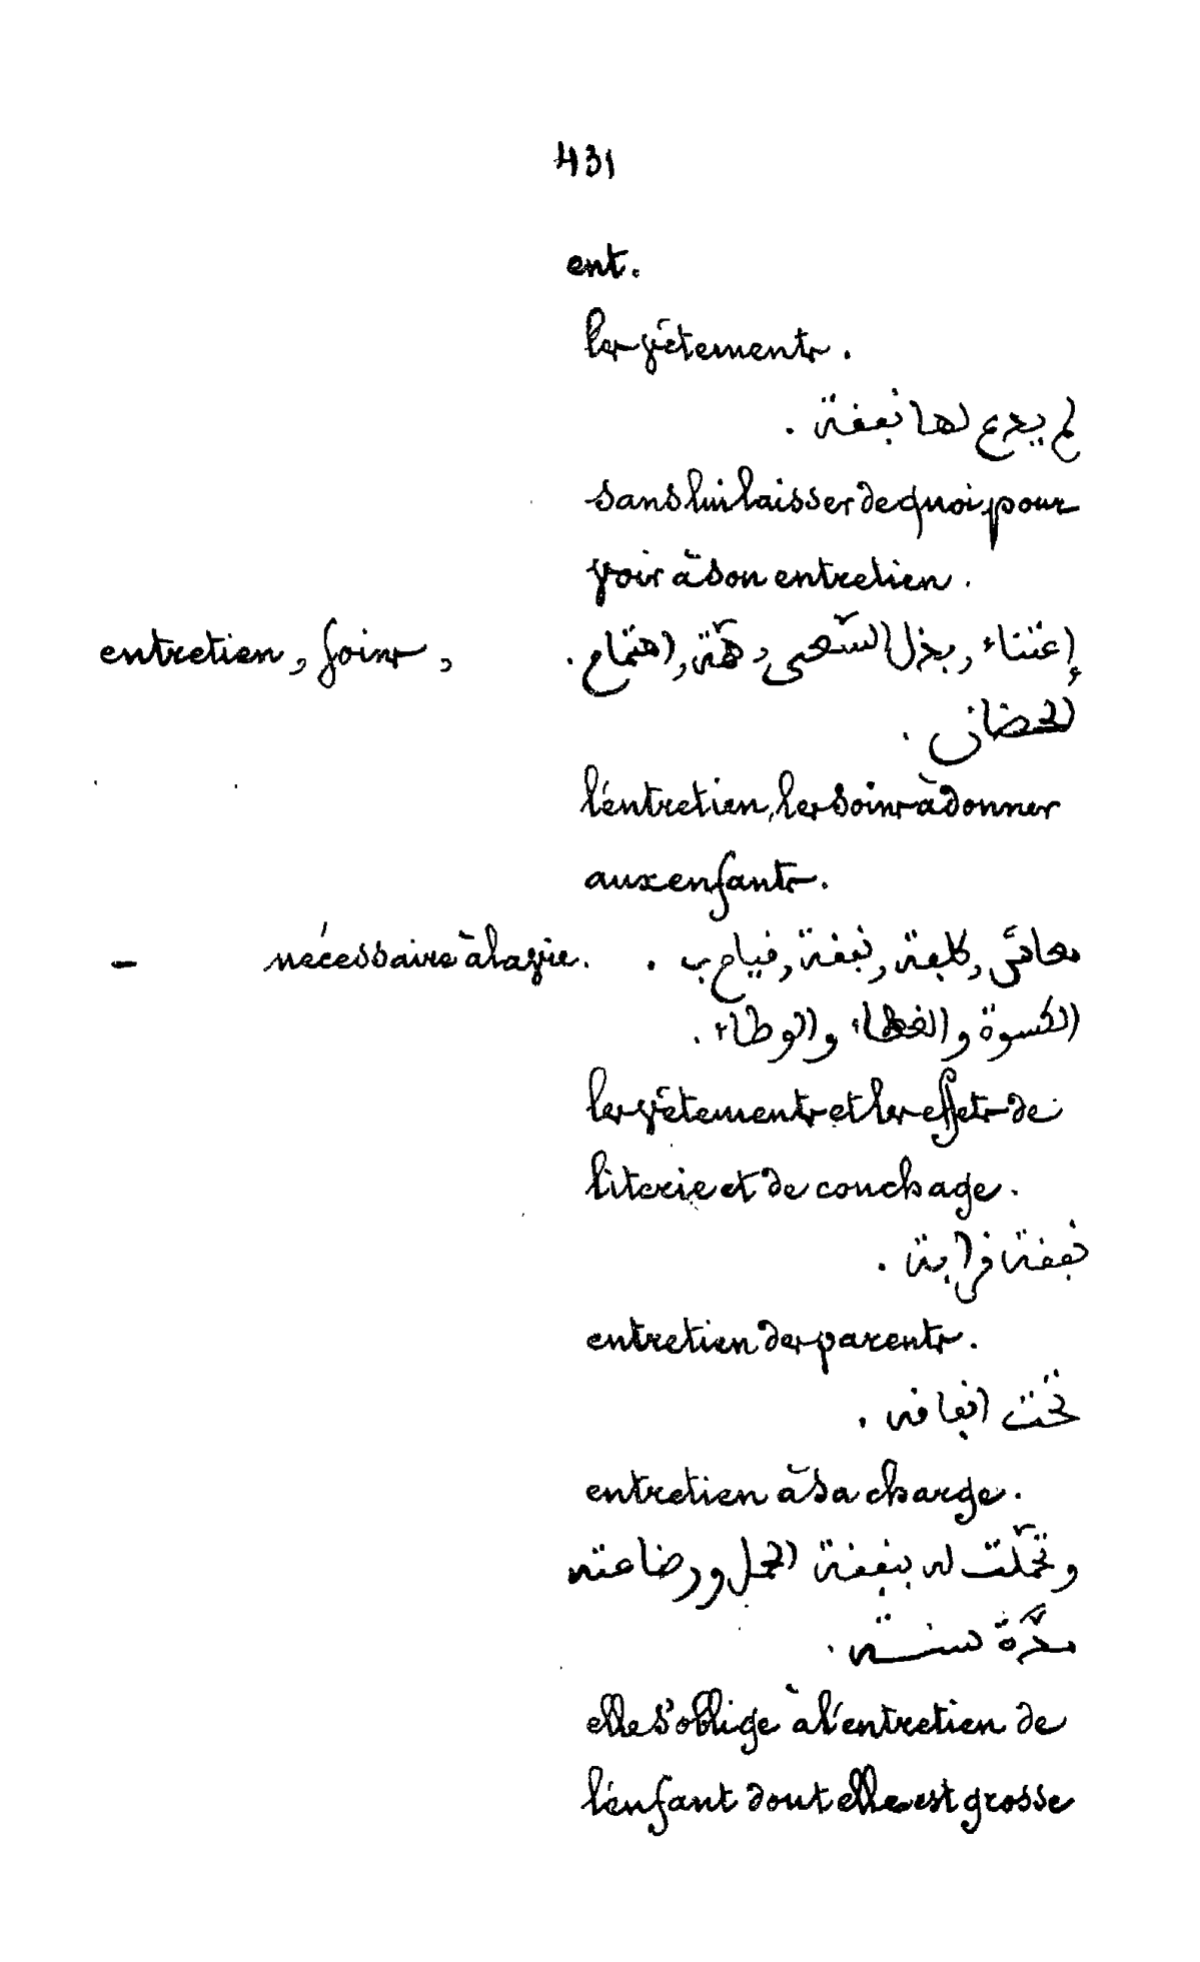 431
ent.
les vêtements.
لم يدع لها نفقة .
sans lui laisser de quoi pour
voir à son entretien.
entretien, soins, إعتناء, بذل السّعى, همّة, اهتمام .
الحضان .
l'entretien, les soins à donner
aux enfants.
— nécessaire à la vie. معاش, كلفة, نفقة, قيام ب .
الكسوة والغطاء والوطاء .
les vêtements et les effets de
literie et de couchage.
نفقة قرابة .
entretien des parents.
تحت انفاقه .
entretien à sa charge.
وتحمّلت له بنفقة الحمل ورضاعته
مدّة سنتــه .
elle s'oblige à l'entretien de
l'enfant dont elle est grosse